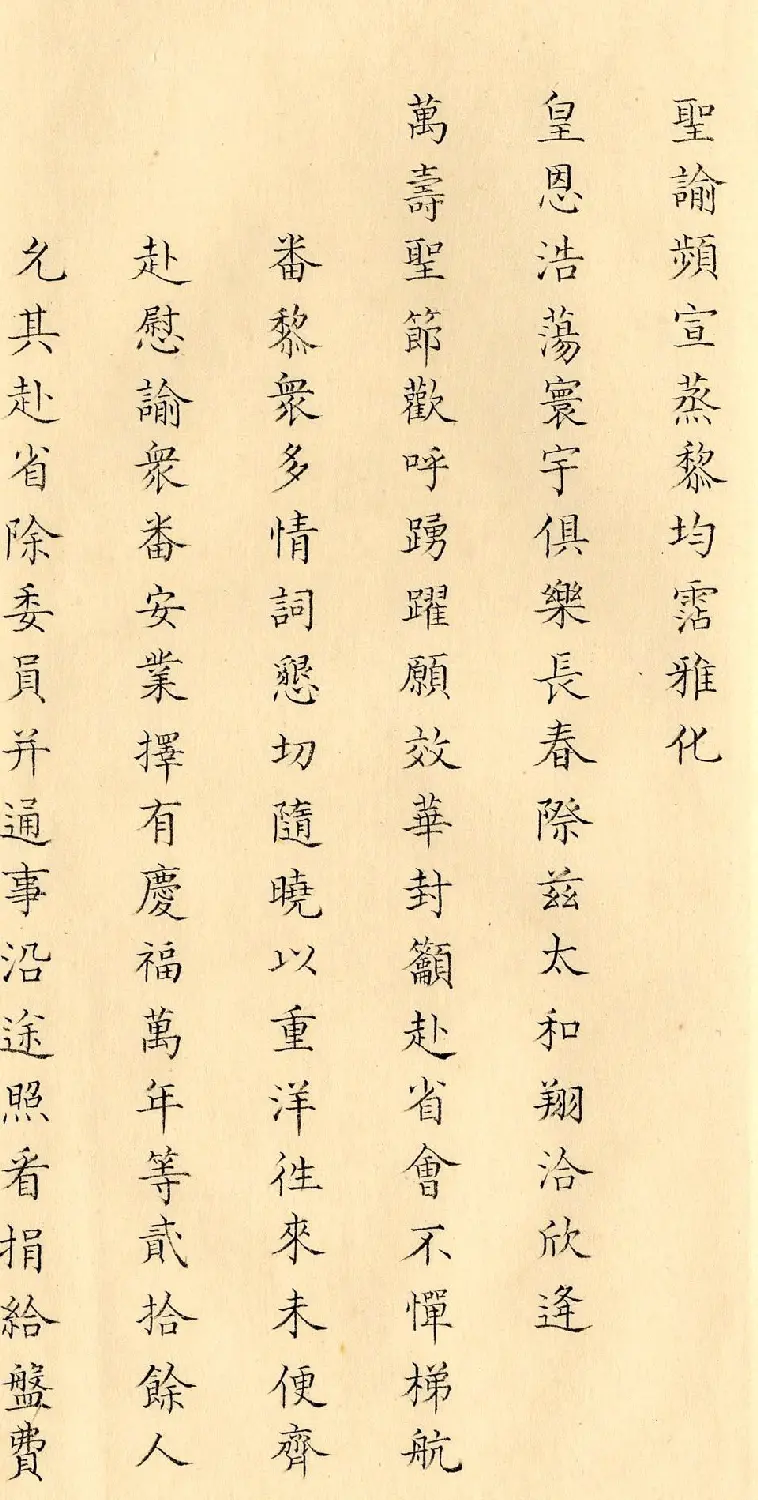 聖諭頻宣蒸黎均霑雅化
皇恩浩蕩寰宇俱樂長春際茲太和翔洽欣逢
萬壽聖節歡呼踴躍願效華封籲赴省會不憚梯航
番黎衆多情詞懇切隨曉以重洋徃來未便齊
赴慰諭衆番安業擇有慶福萬年等貳拾餘人
允其赴省除委員并通事沿途照看捐給盤費